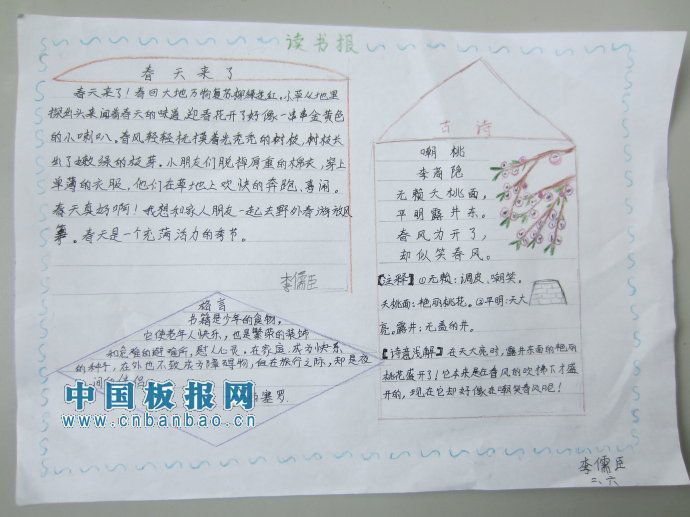 读书报
春天来了
春天来了！春回大地万物复苏柳绿花红。小草从地里
探出头来闻着春天的味道，迎春花开了好像一串串金黄色
的小喇叭。春风轻轻抚摸着光秃秃的树枝，树枝长
出了嫩绿的枝芽。小朋友们脱掉厚重的棉衣，穿上
单薄的衣服，他们在草地上欢快的奔跑、喜闹。
春天真好啊！我想和家人朋友一起去野外春游放风
筝。春天是一个充满活力的季节。
李儒臣
格言
书籍是少年的食物，
它使老年人快乐，也是繁荣的装饰
和危难的避难所，慰人心灵。在家庭成为快乐
的种子，在外也不致成为障碍物，但在旅行之际，却是夜
间的伴侣
塞罗
古诗
嘲桃
李商隐
无赖夭桃面，
平明露井东。
春风为开了，
却似笑春风。
【注释】①无赖：调皮、嘲笑。
夭桃面：艳丽桃花。②平明：天大
亮。露井：无盖的井。
【诗意浅解】在天大亮时，露井东面的艳丽
桃花盛开了！它本来是在春风的吹拂下才盛
开的，现在它却好像在嘲笑春风呢！
李儒臣
二、六
中国板报网
www.cnbanbao.cn